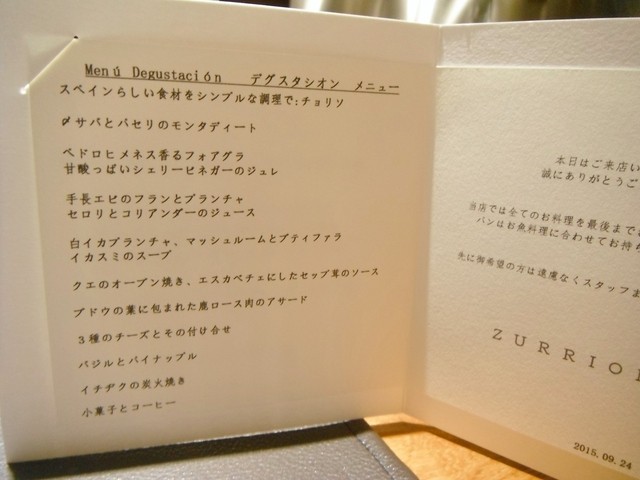 Menú Degustación　デグスタシオン　メニュー
スペインらしい食材をシンプルな調理で:チョリソ
〆サバとパセリのモンタディート
ペドロヒメネス香るフォアグラ
甘酸っぱいシェリービネガーのジュレ
手長エビのフランとプランチャ
セロリとコリアンダーのジュース
白イカプランチャ、マッシュルームとブティファラ
イカスミのスープ
クエのオーブン焼き、エスカベチェにしたセップ茸のソース
ブドウの葉に包まれた鹿ロース肉のアサード
３種のチーズとその付け合せ
バジルとパイナップル
イチヂクの炭火焼き
小菓子とコーヒー
本日はご来店い
誠にありがとうご
当店では全てのお料理を最後まで
パンはお魚料理に合わせてお持
先に御希望の方は遠慮なくスタッフま
ZURRIO
2015.09.24